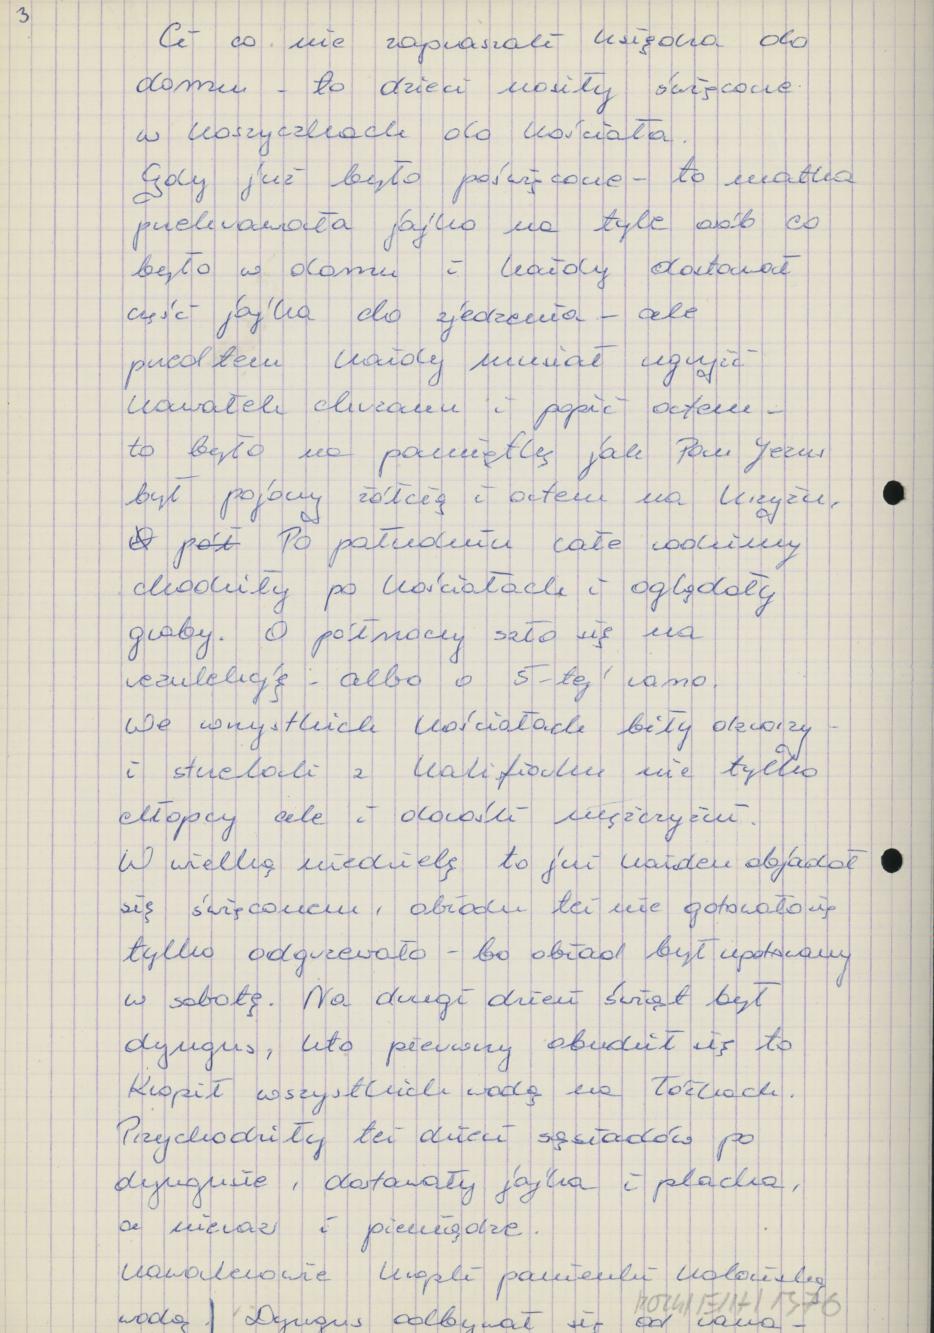 3
Ci co nie zapraszali księdza do
domu - to dzieci nosiły święcone
w koszyczkach do kościoła.
Gdy już było poświęcone - to matka
przekrawała jajko na tyle osób co
było w domu i każdy dostawał
część jajka do zjedzenia - ale
przedtem każdy musiał ugryźć
kawałek chrzanu i popić octem -
to było na pamiętkę jak Pan Jezus
był pojony żółcią i octem na krzyżu.
O pół Po południu całe rodziny
chodziły po kościołach i oglądały
groby. O północy szło się na
rezulekcję - albo o 5-tej rano.
We wszystkich kościołach biły dzwony -
i strzelali z kalifiorku nie tylko
chłopcy ale i dorośli mężczyźni.
W wielką niedzielę to już każden objadał
się święconem, obiadu też nie gotowało się
tylko odgrzewało - bo obiad był ugotowany
w sobotę. Na drugi dzień świąt był
dyngus, kto pierwszy obudził się to
kropił wszystkich wodą na łóżkach.
Przychodziły też dzieci sąsiadów po
dyngusie, dostawały jajka i placka,
a nieraz i pieniądze.
Kawalerowie kropili panienki kolońską
wodą) Dyngus odbywał się od rana -
1376